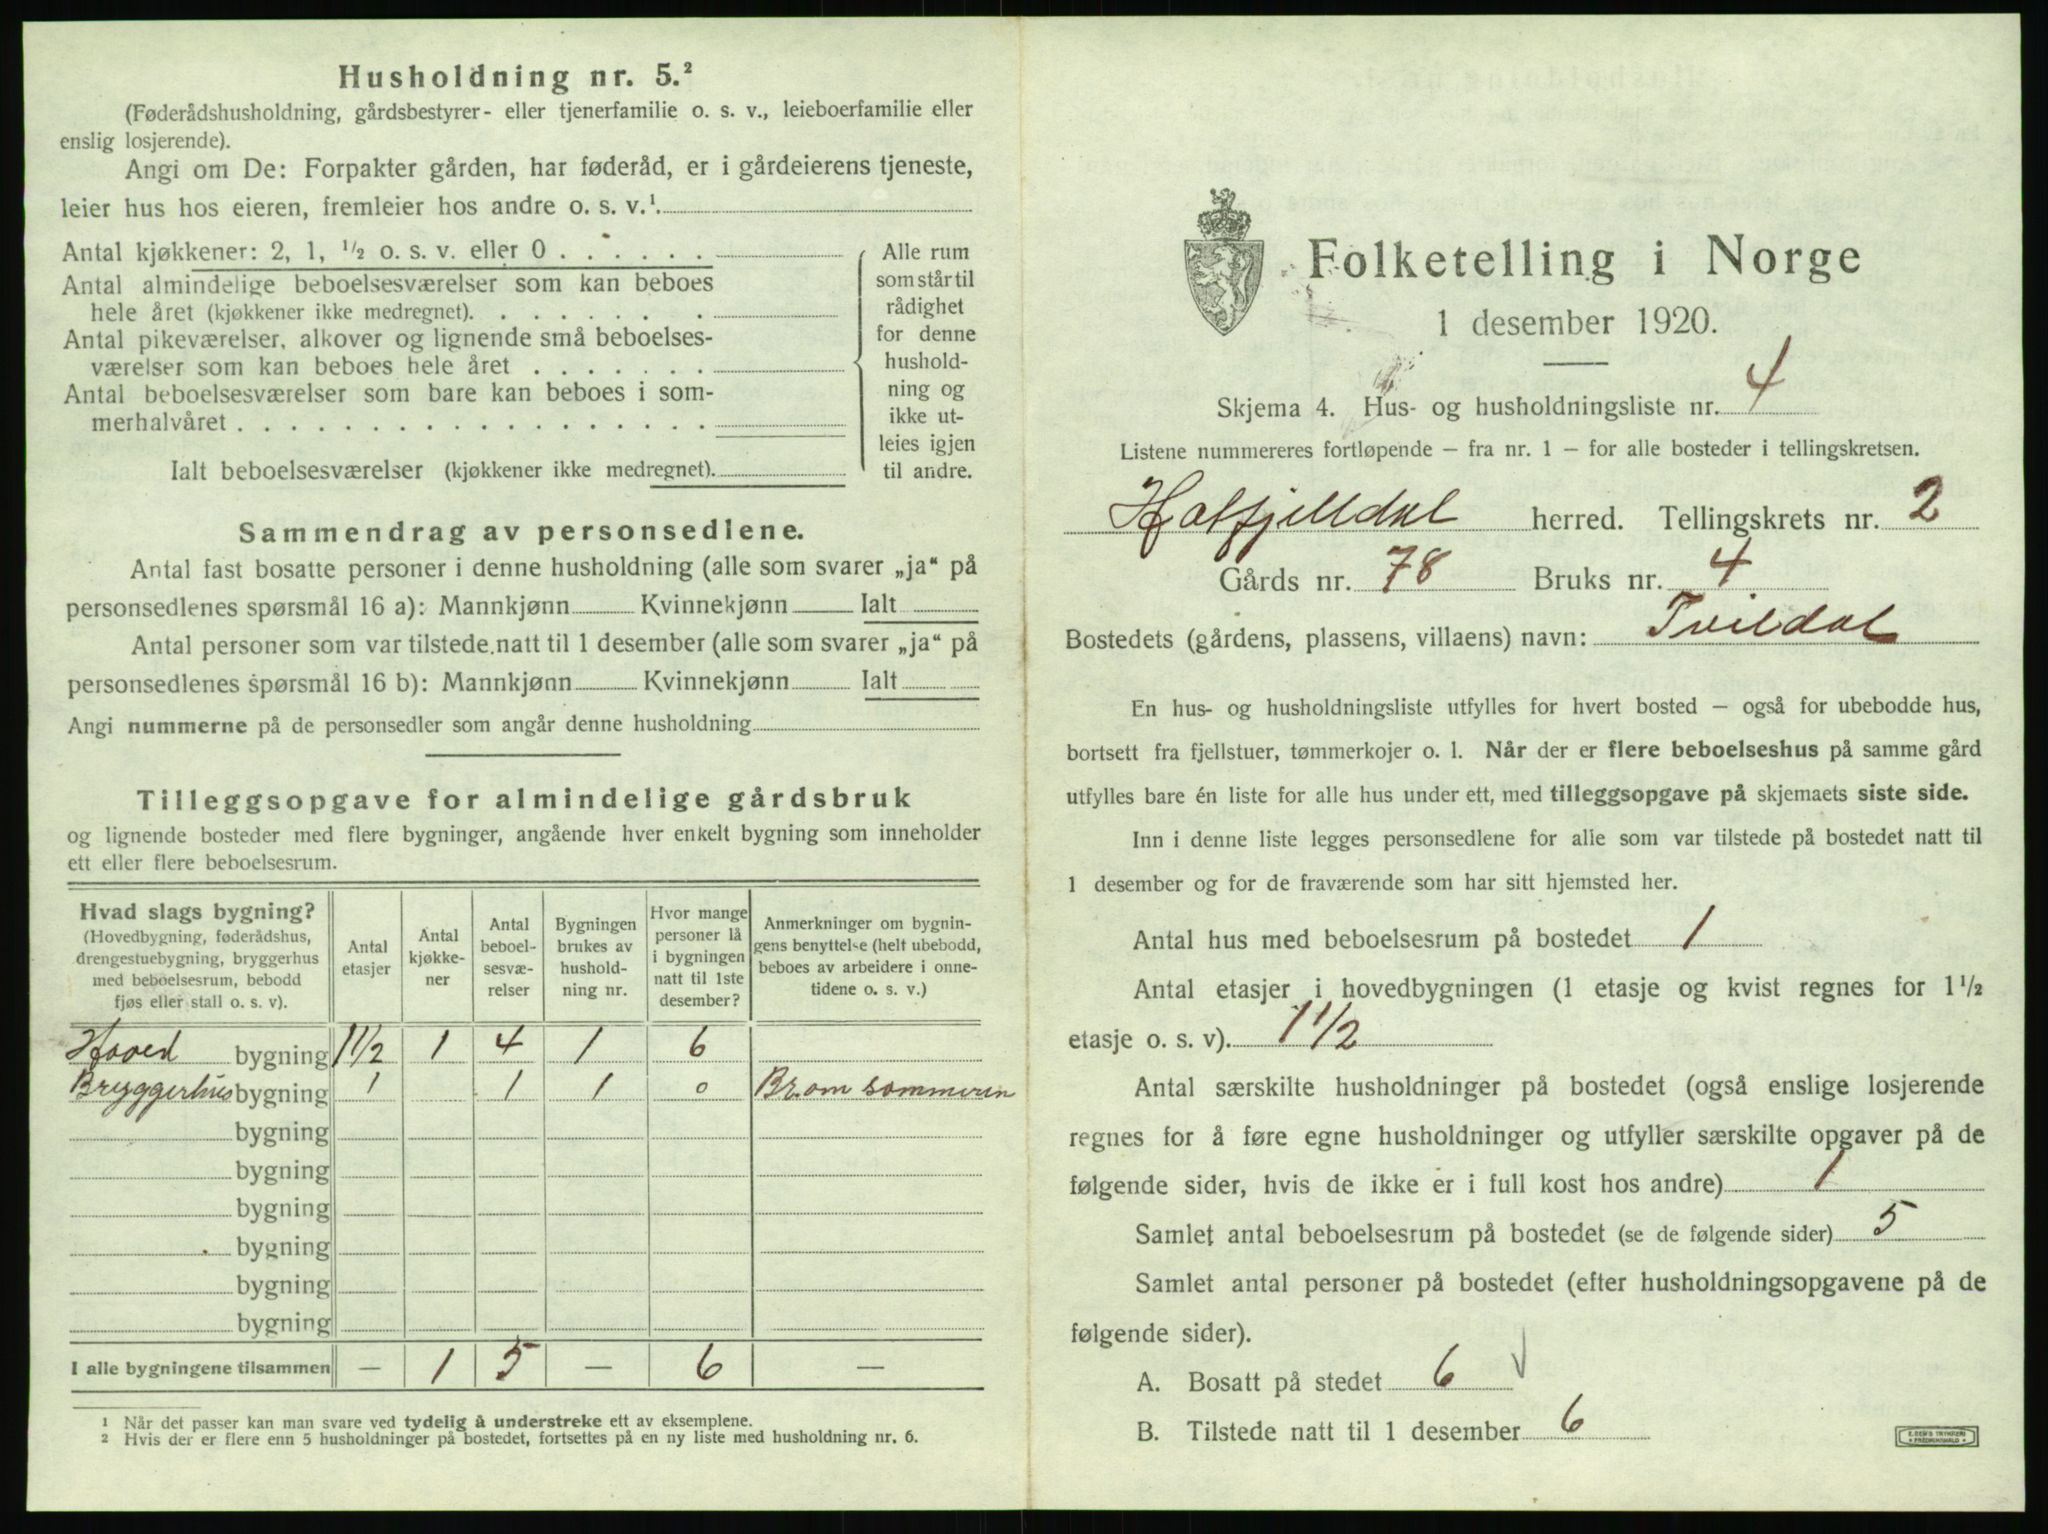 Husholdning nr. 5.²
(Føderådshusholdning, gårdsbestyrer- eller tjenerfamilie o. s. v., leieboerfamilie eller
enslig losjerende).
Angi om De: Forpakter gården, har føderåd, er i gårdeierens tjeneste,
leier hus hos eieren, fremleier hos andre o. s. v.¹
Antal kjøkkener: 2, 1, ½ o. s. v. eller 0 . . . . . .
Antal almindelige beboelsesværelser som kan beboes
hele året (kjøkkener ikke medregnet). . . . . . . .
Antal pikeværelser, alkover og lignende små beboelses-
værelser som kan beboes hele året . . . . . . .
Antal beboelsesværelser som bare kan beboes i som-
merhalvåret . . . . . . . . . . . . . . . . . .
Ialt beboelsesværelser (kjøkkener ikke medregnet).
Alle rum
som står til
rådighet
for denne
hushold-
ning og
ikke ut-
leies igjen
til andre.
Sammendrag av personsedlene.
Antal fast bosatte personer i denne husholdning (alle som svarer „ja“ på
personsedlenes spørsmål 16 a): Mannkjønn Kvinnekjønn Ialt
Antal personer som var tilstede natt til 1 desember (alle som svarer „ja“ på
personsedlenes spørsmål 16 b): Mannkjønn Kvinnekjønn Ialt
Angi nummerne på de personsedler som angår denne husholdning
Tilleggsopgave for almindelige gårdsbruk
og lignende bosteder med flere bygninger, angående hver enkelt bygning som inneholder
ett eller flere beboelsesrum.
Hvad slags bygning?
(Hovedbygning, føderådshus,
drengestuebygning, bryggerhus
med beboelsesrum, bebodd
fjøs eller stall o. s. v).
Antal
etasjer
Antal
kjøkke-
ner
Antal
beboel-
sesvæ-
relser
Bygningen
brukes av
hushold-
ning nr.
Hvor mange
personer lå
i bygningen
natt til 1ste
desember?
Anmerkninger om bygnin-
gens benyttelse (helt ubebodd,
beboes av arbeidere i onne-
tidene o. s. v.)
Hoved bygning 1½ 1 4 1 6
Bryggerhus bygning 1 1 1 0 Br. om sommeren
bygning
bygning
bygning
bygning
bygning
bygning
I alle bygningene tilsammen — 1 5 — 6 —
¹ Når det passer kan man svare ved tydelig å understreke ett av eksemplene.
² Hvis der er flere enn 5 husholdninger på bostedet, fortsettes på en ny liste med husholdning nr. 6.
Folketelling i Norge
1 desember 1920.
Skjema 4. Hus- og husholdningsliste nr. 4
Listene nummereres fortløpende — fra nr. 1 — for alle bosteder i tellingskretsen.
Hatfjelldal herred. Tellingskrets nr. 2
Gårds nr. 78 Bruks nr. 4
Bostedets (gårdens, plassens, villaens) navn: Tvildal
En hus- og husholdningsliste utfylles for hvert bosted — også for ubebodde hus,
bortsett fra fjellstuer, tømmerkojer o. l. Når der er flere beboelseshus på samme gård
utfylles bare én liste for alle hus under ett, med tilleggsopgave på skjemaets siste side.
Inn i denne liste legges personsedlene for alle som var tilstede på bostedet natt til
1 desember og for de fraværende som har sitt hjemsted her.
Antal hus med beboelsesrum på bostedet 1
Antal etasjer i hovedbygningen (1 etasje og kvist regnes for 1½
etasje o. s. v). 1½
Antal særskilte husholdninger på bostedet (også enslige losjerende
regnes for å føre egne husholdninger og utfyller særskilte opgaver på de
følgende sider, hvis de ikke er i full kost hos andre) 1
Samlet antal beboelsesrum på bostedet (se de følgende sider) 5
Samlet antal personer på bostedet (efter husholdningsopgavene på de
følgende sider).
A. Bosatt på stedet 6
B. Tilstede natt til 1 desember 6